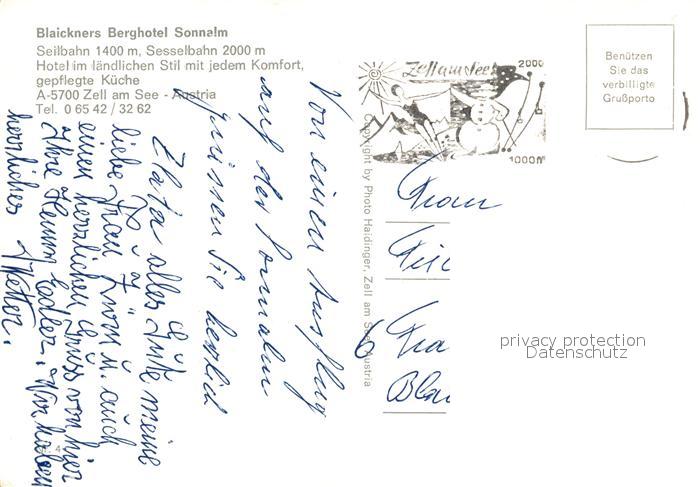 Blaickners Berghotel Sonnalm
Seilbahn 1400 m, Sesselbahn 2000 m
Hotel im ländlichen Stil mit jedem Komfort,
gepflegte Küche
A-5700 Zell am See - Austria
Tel. 0 65 42 / 32 62
Zell am See
2000
1000m
Benützen
Sie das
verbilligte
Grußporto
Copyright by Photo Haidinger, Zell am See, Austria
Von einem Ausflug
auf der Sonnalm
grüssen Sie herzlich
alles Gute meine
liebe Frau u. auch
einen herzlichen Gruss von hier
Ihre Wir haben
herrliches Wetter.
Frau
6
privacy protection
Datenschutz